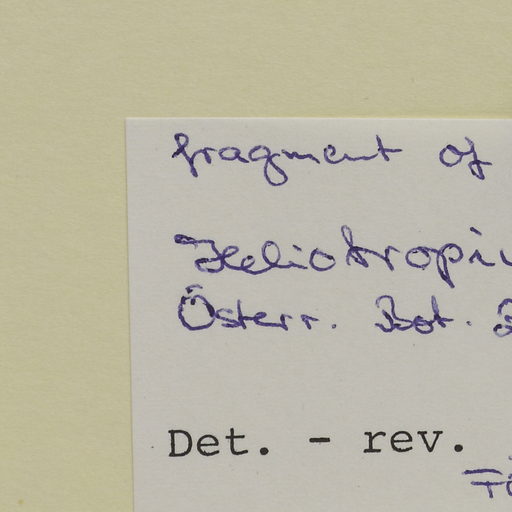 fragment of
Heliotropiu
Österr. Bot. Z
Det. - rev.